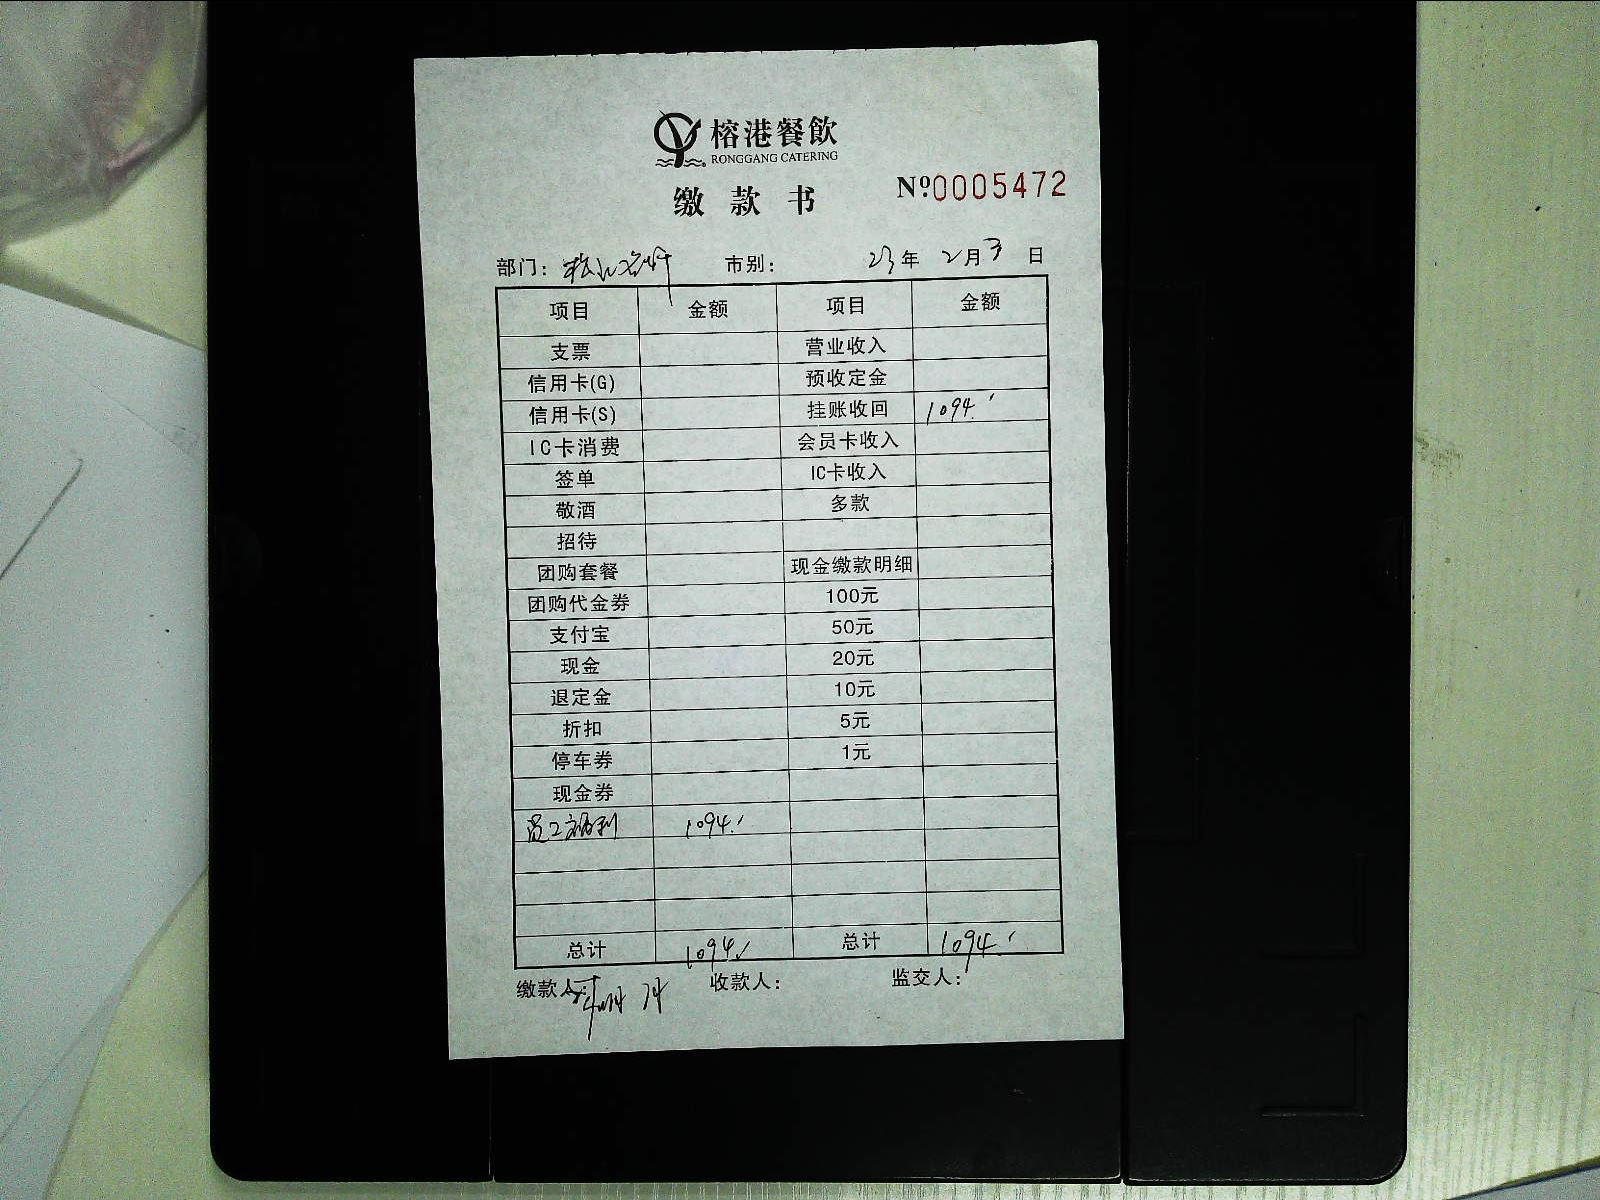 榕港餐飲
RONGGANG CATERING
缴款书
№0005472
部门： 市别： 23年 2月3日
项目 金额 项目 金额
支票 营业收入
信用卡(G) 预收定金
信用卡(S) 挂账收回 1094.
IC卡消费 会员卡收入
签单 IC卡收入
敬酒 多款
招待
团购套餐 现金缴款明细
团购代金券 100元
支付宝 50元
现金 20元
退定金 10元
折扣 5元
停车券 1元
现金券
员工福利 1094.
总计 1094. 总计 1094.
缴款人： 收款人： 监交人：